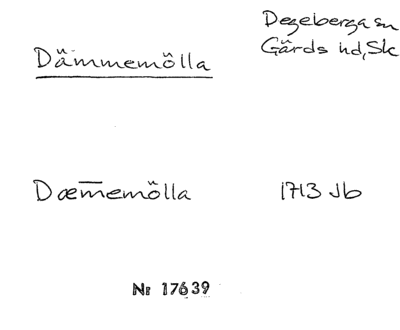 Degeberga sn
Dämmemölla
Gärds hd, Sk
Dæm̅emölla
1713 Jb
Nr 17639